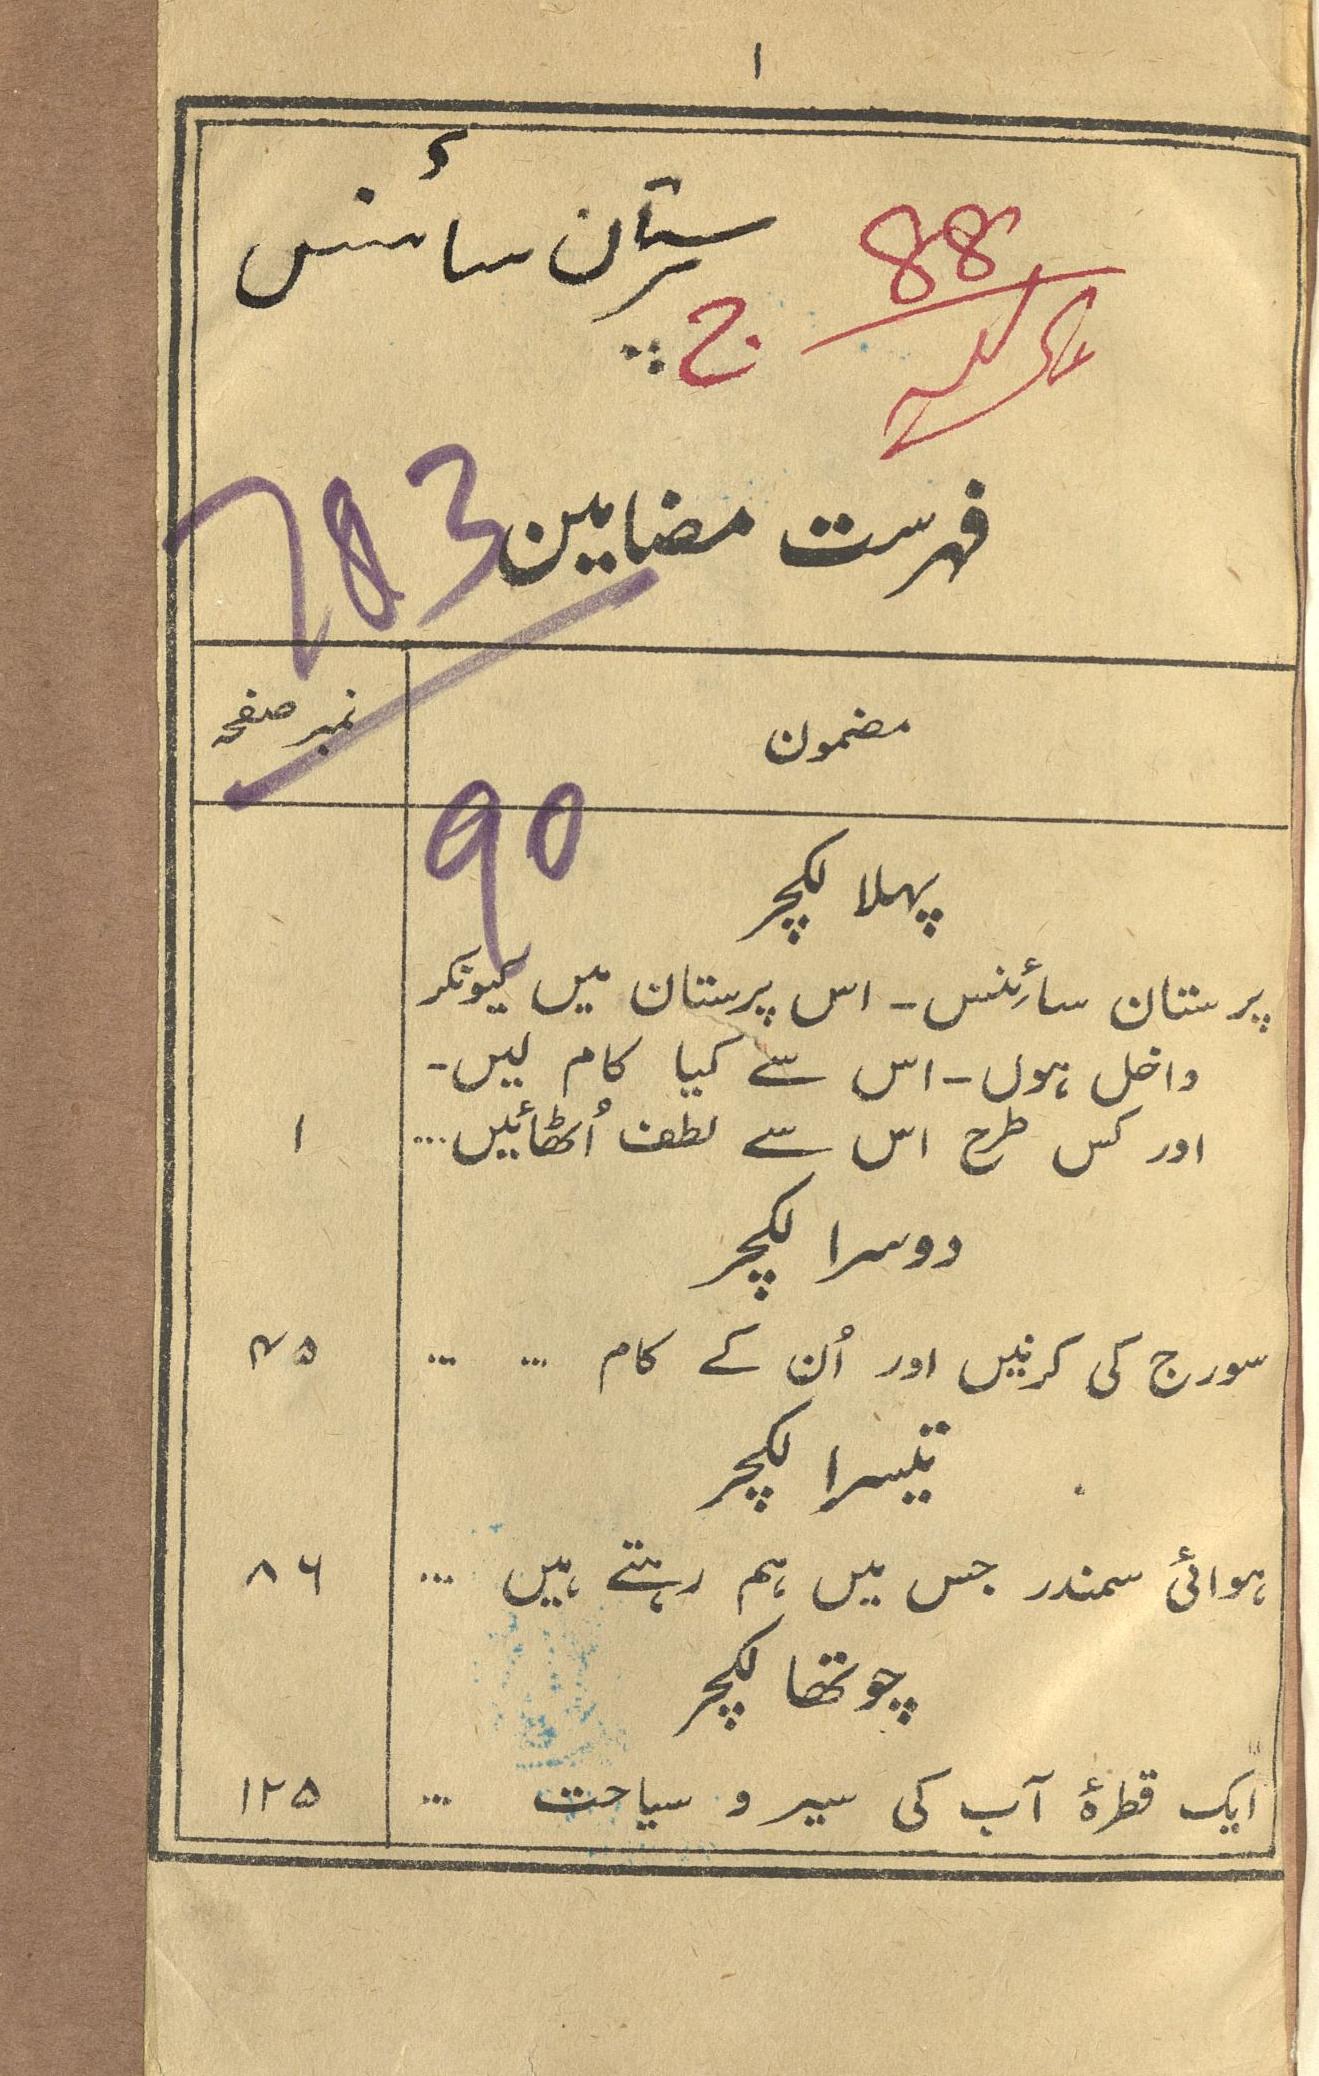 ۱
پرستان سائنس
88
ج
فہرست مضامین
783
مضمون
نمبر صفحہ
90
پہلا لکچر
پرستان سائنس۔ اس پرستان میں کیونکر
داخل ہوں۔ اس سے کیا کام لیں۔
اور کس طرح اس سے لطف اُٹھائیں... ۱
دوسرا لکچر
سورج کی کرنیں اور اُن کے کام ... ... ... ۴۵
تیسرا لکچر
ہوائی سمندر جس میں ہم رہتے ہیں ... ۸۶
چوتھا لکچر
ایک قطرۂ آب کی سیر و سیاحت ... ۱۲۵